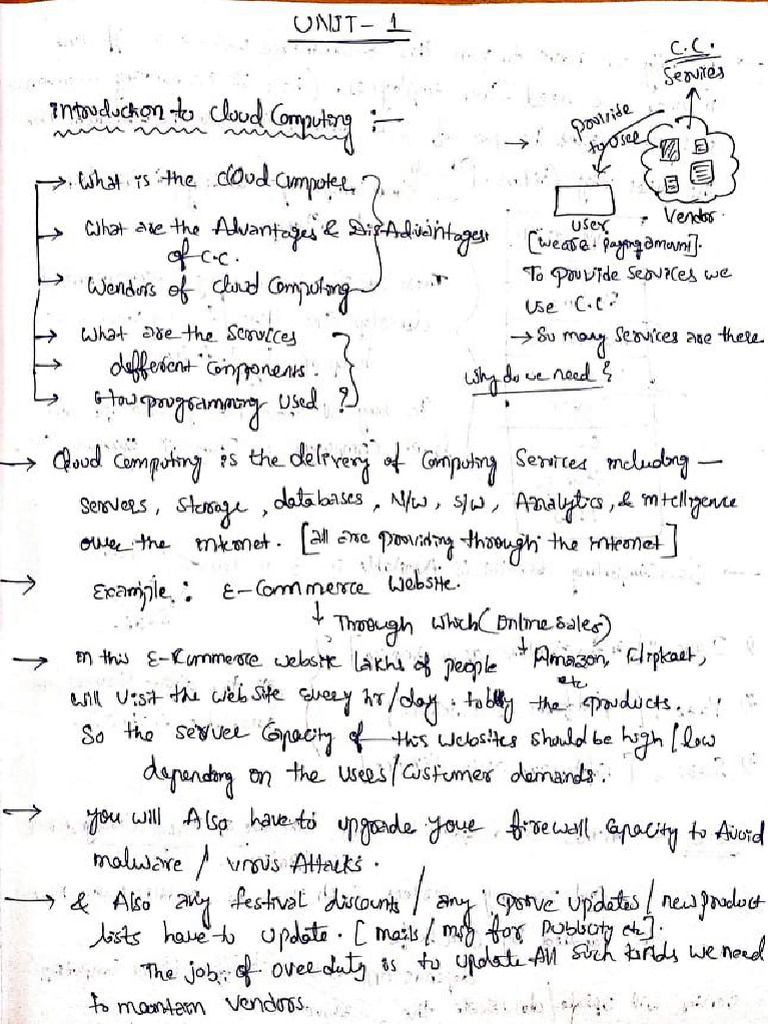 UNIT - 1
C.C.
Services
Introduction to Cloud Computing :-
provide
to user
→ What is the cloud computer
User
Vendor
→ What are the Advantages & DisAdvantages
of C.C.
[we are paying amount].
→ Vendors of cloud Computing
To provide services we
use C.C.
→ What are the services
→ So many services are there
→ different components.
Why do we need ?
→ How programming used ?
→ Cloud Computing is the delivery of Computing Services including —
servers, storage, databases, N/W, S/W, Analytics, & intelligence
over the internet. [all are providing through the internet]
→ Example : E-Commerce Website.
↓ Through which (Online sales)
→ In this E-Commerce website lakhs of people ↓ Amazon, Flipkart,
etc
will visit the website every hr/day. to buy the products.
So the server capacity of this websites should be high / low
depending on the users/customer demands.
→ you will Also have to upgrade your firewall capacity to Avoid
malware / virus Attacks.
→ & Also any festival discounts / any price updates / new product
lists have to update. [mails / msg for publicity etc].
The job of over duty is to update All such kinds we need
to maintain vendors.